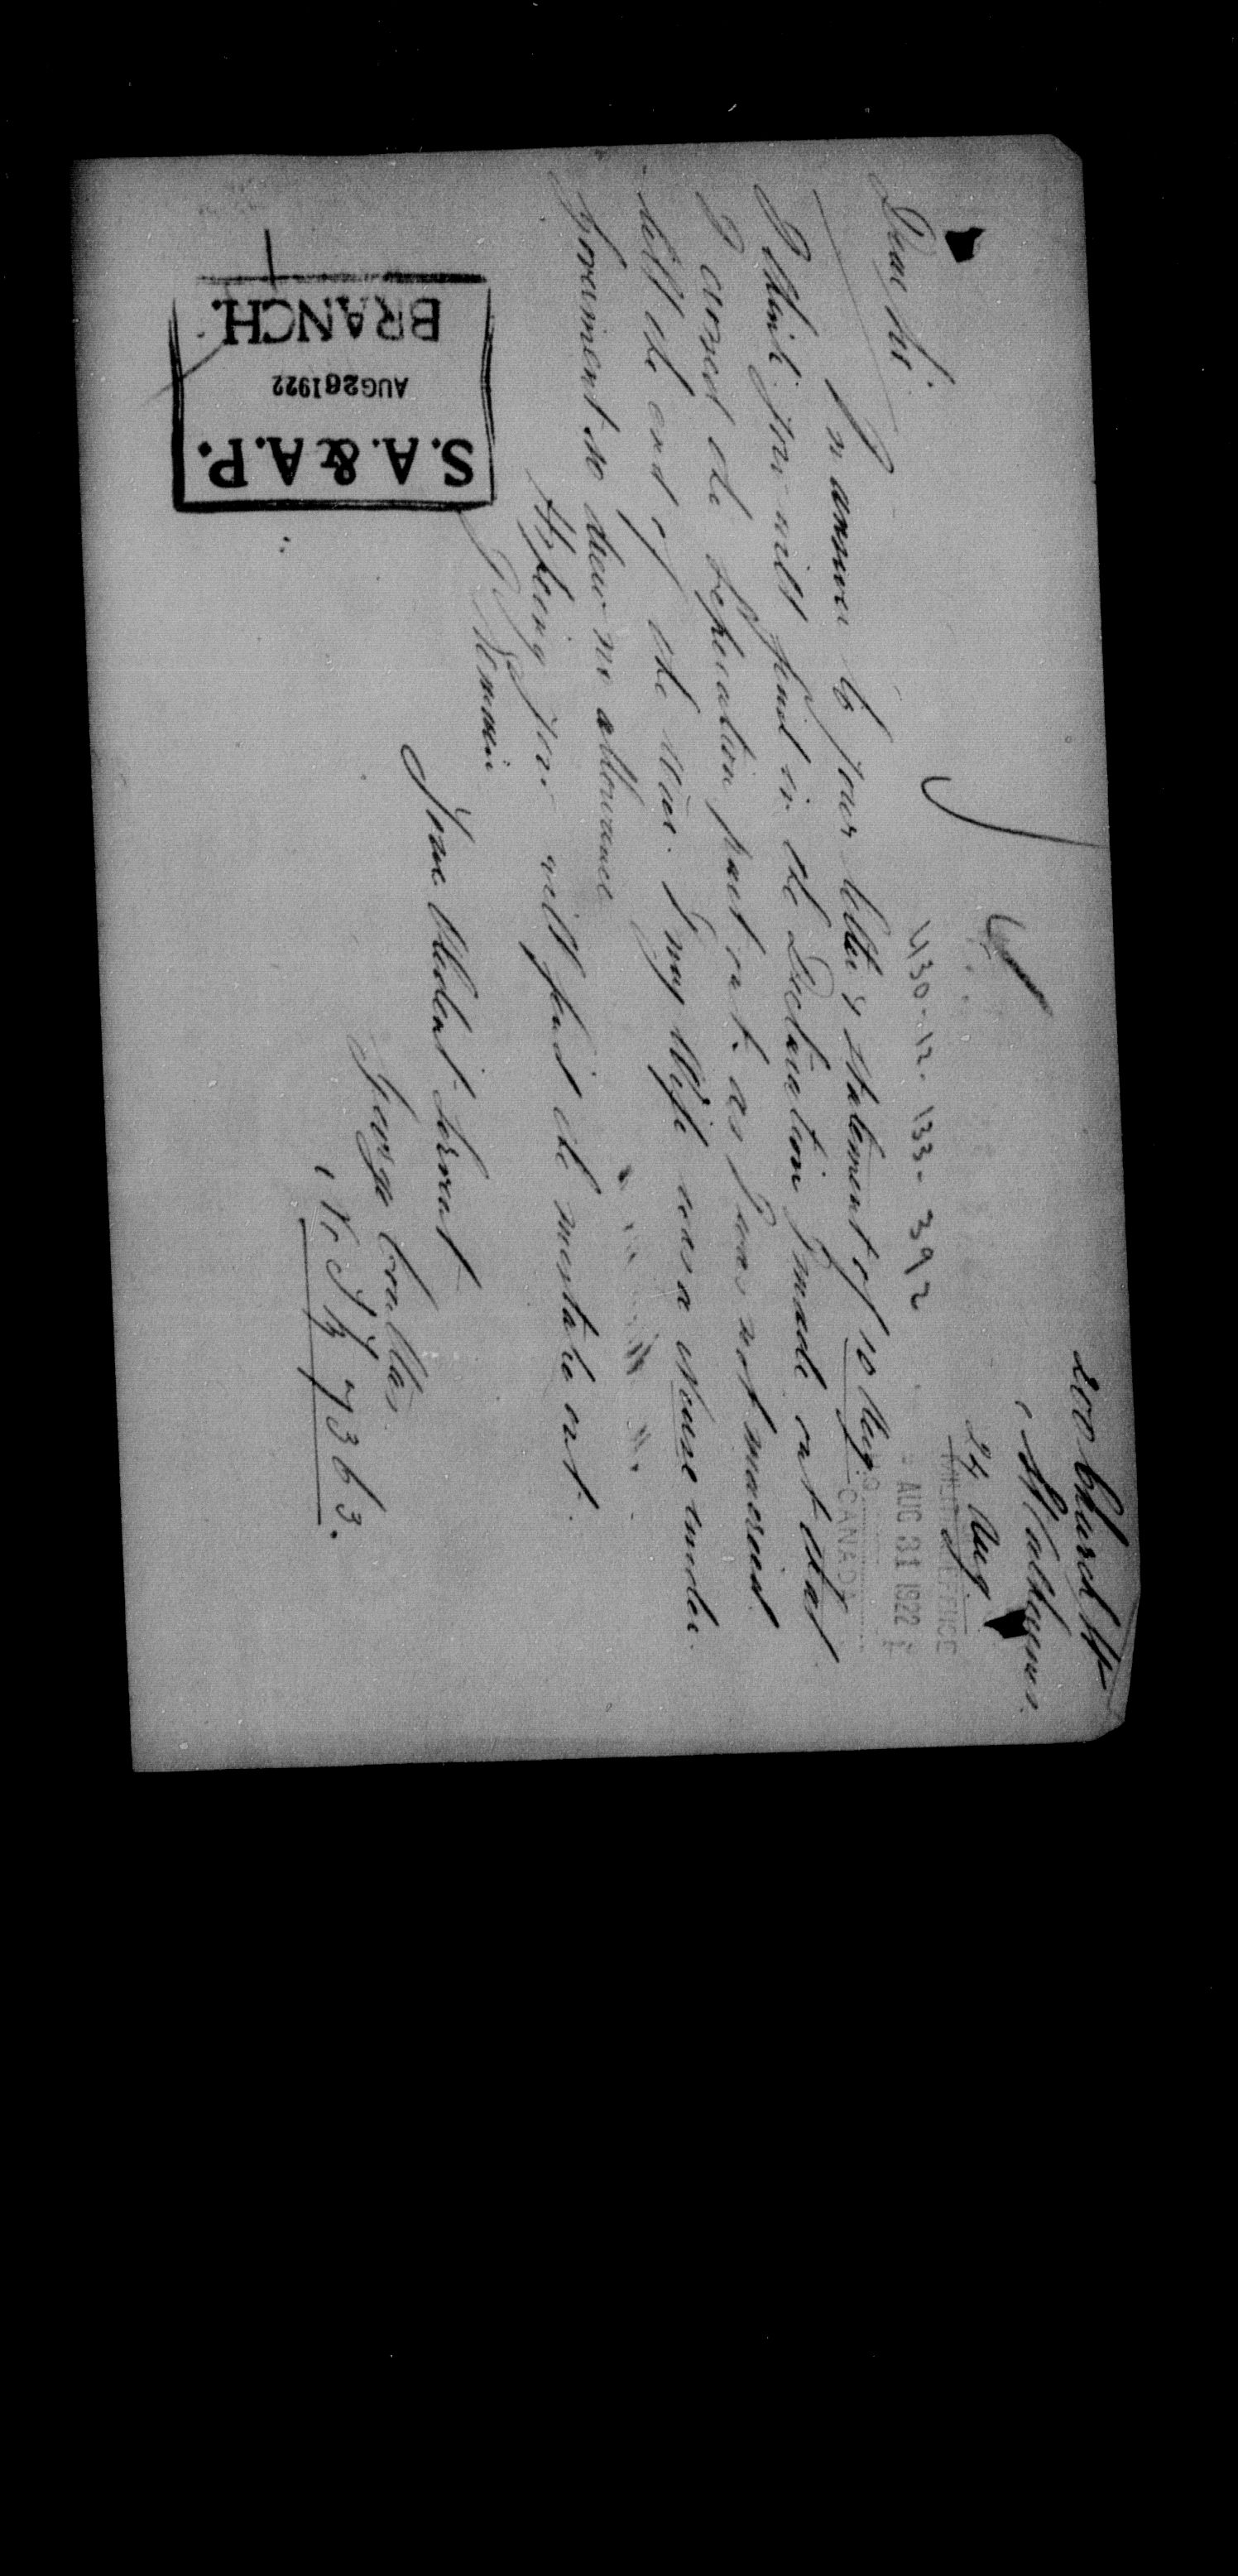 200 Church St
St Catharines
24 Aug
430-12-133-392
AUG 31 1922
CANADA
Dear Sir
In answer to your letter & statement of 10 Aug.
I think you will find in the Declaration I made out that
I crossed the Seperation part out as I was not married
till the end of the War. I my Wife was a Nurse under
Goverment so drew no allowance
Hopeing you will find the mistake out.
I Remain
Your Obident Servant
George Coulltas
7363.
S.A. & A.P.
AUG 26 1922
BRANCH.